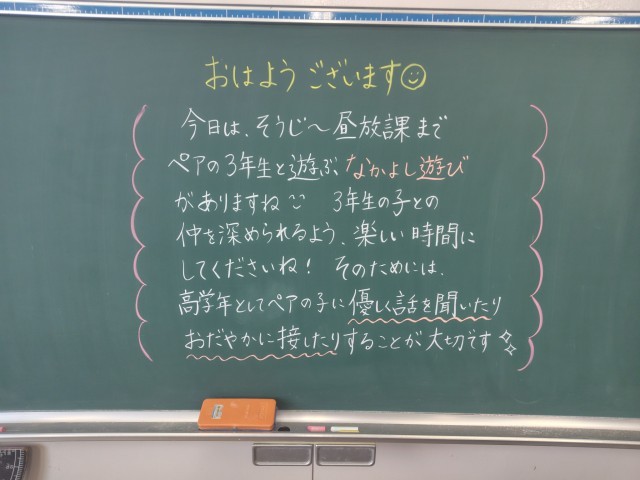 おはようございます☺
今日は、そうじ～昼放課まで
ペアの3年生と遊ぶ、なかよし遊び
がありますね 3年生の子との
仲を深められるよう、楽しい時間に
してくださいね！ そのためには、
高学年としてペアの子に優しく話を聞いたり
おだやかに接したりすることが大切です